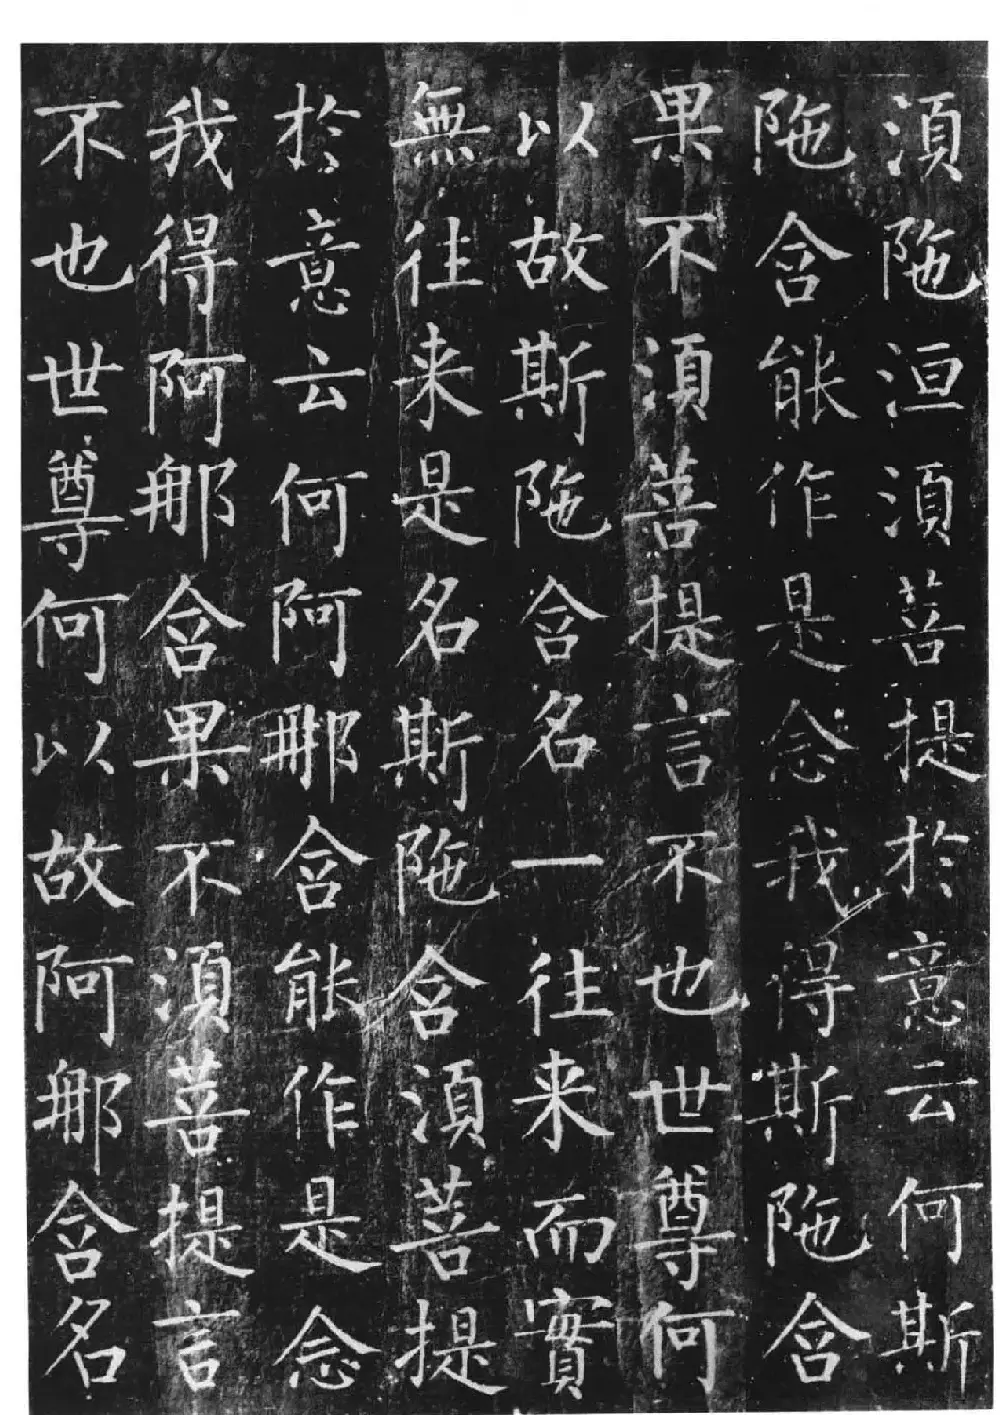 須陁洹須菩提於意云何斯
陁含能作是念我得斯陁含
果不須菩提言不也世尊何
以故斯陁含名一往来而實
無往来是名斯陁含須菩提
於意云何阿那含能作是念
我得阿那含果不須菩提言
不也世尊何以故阿那含名